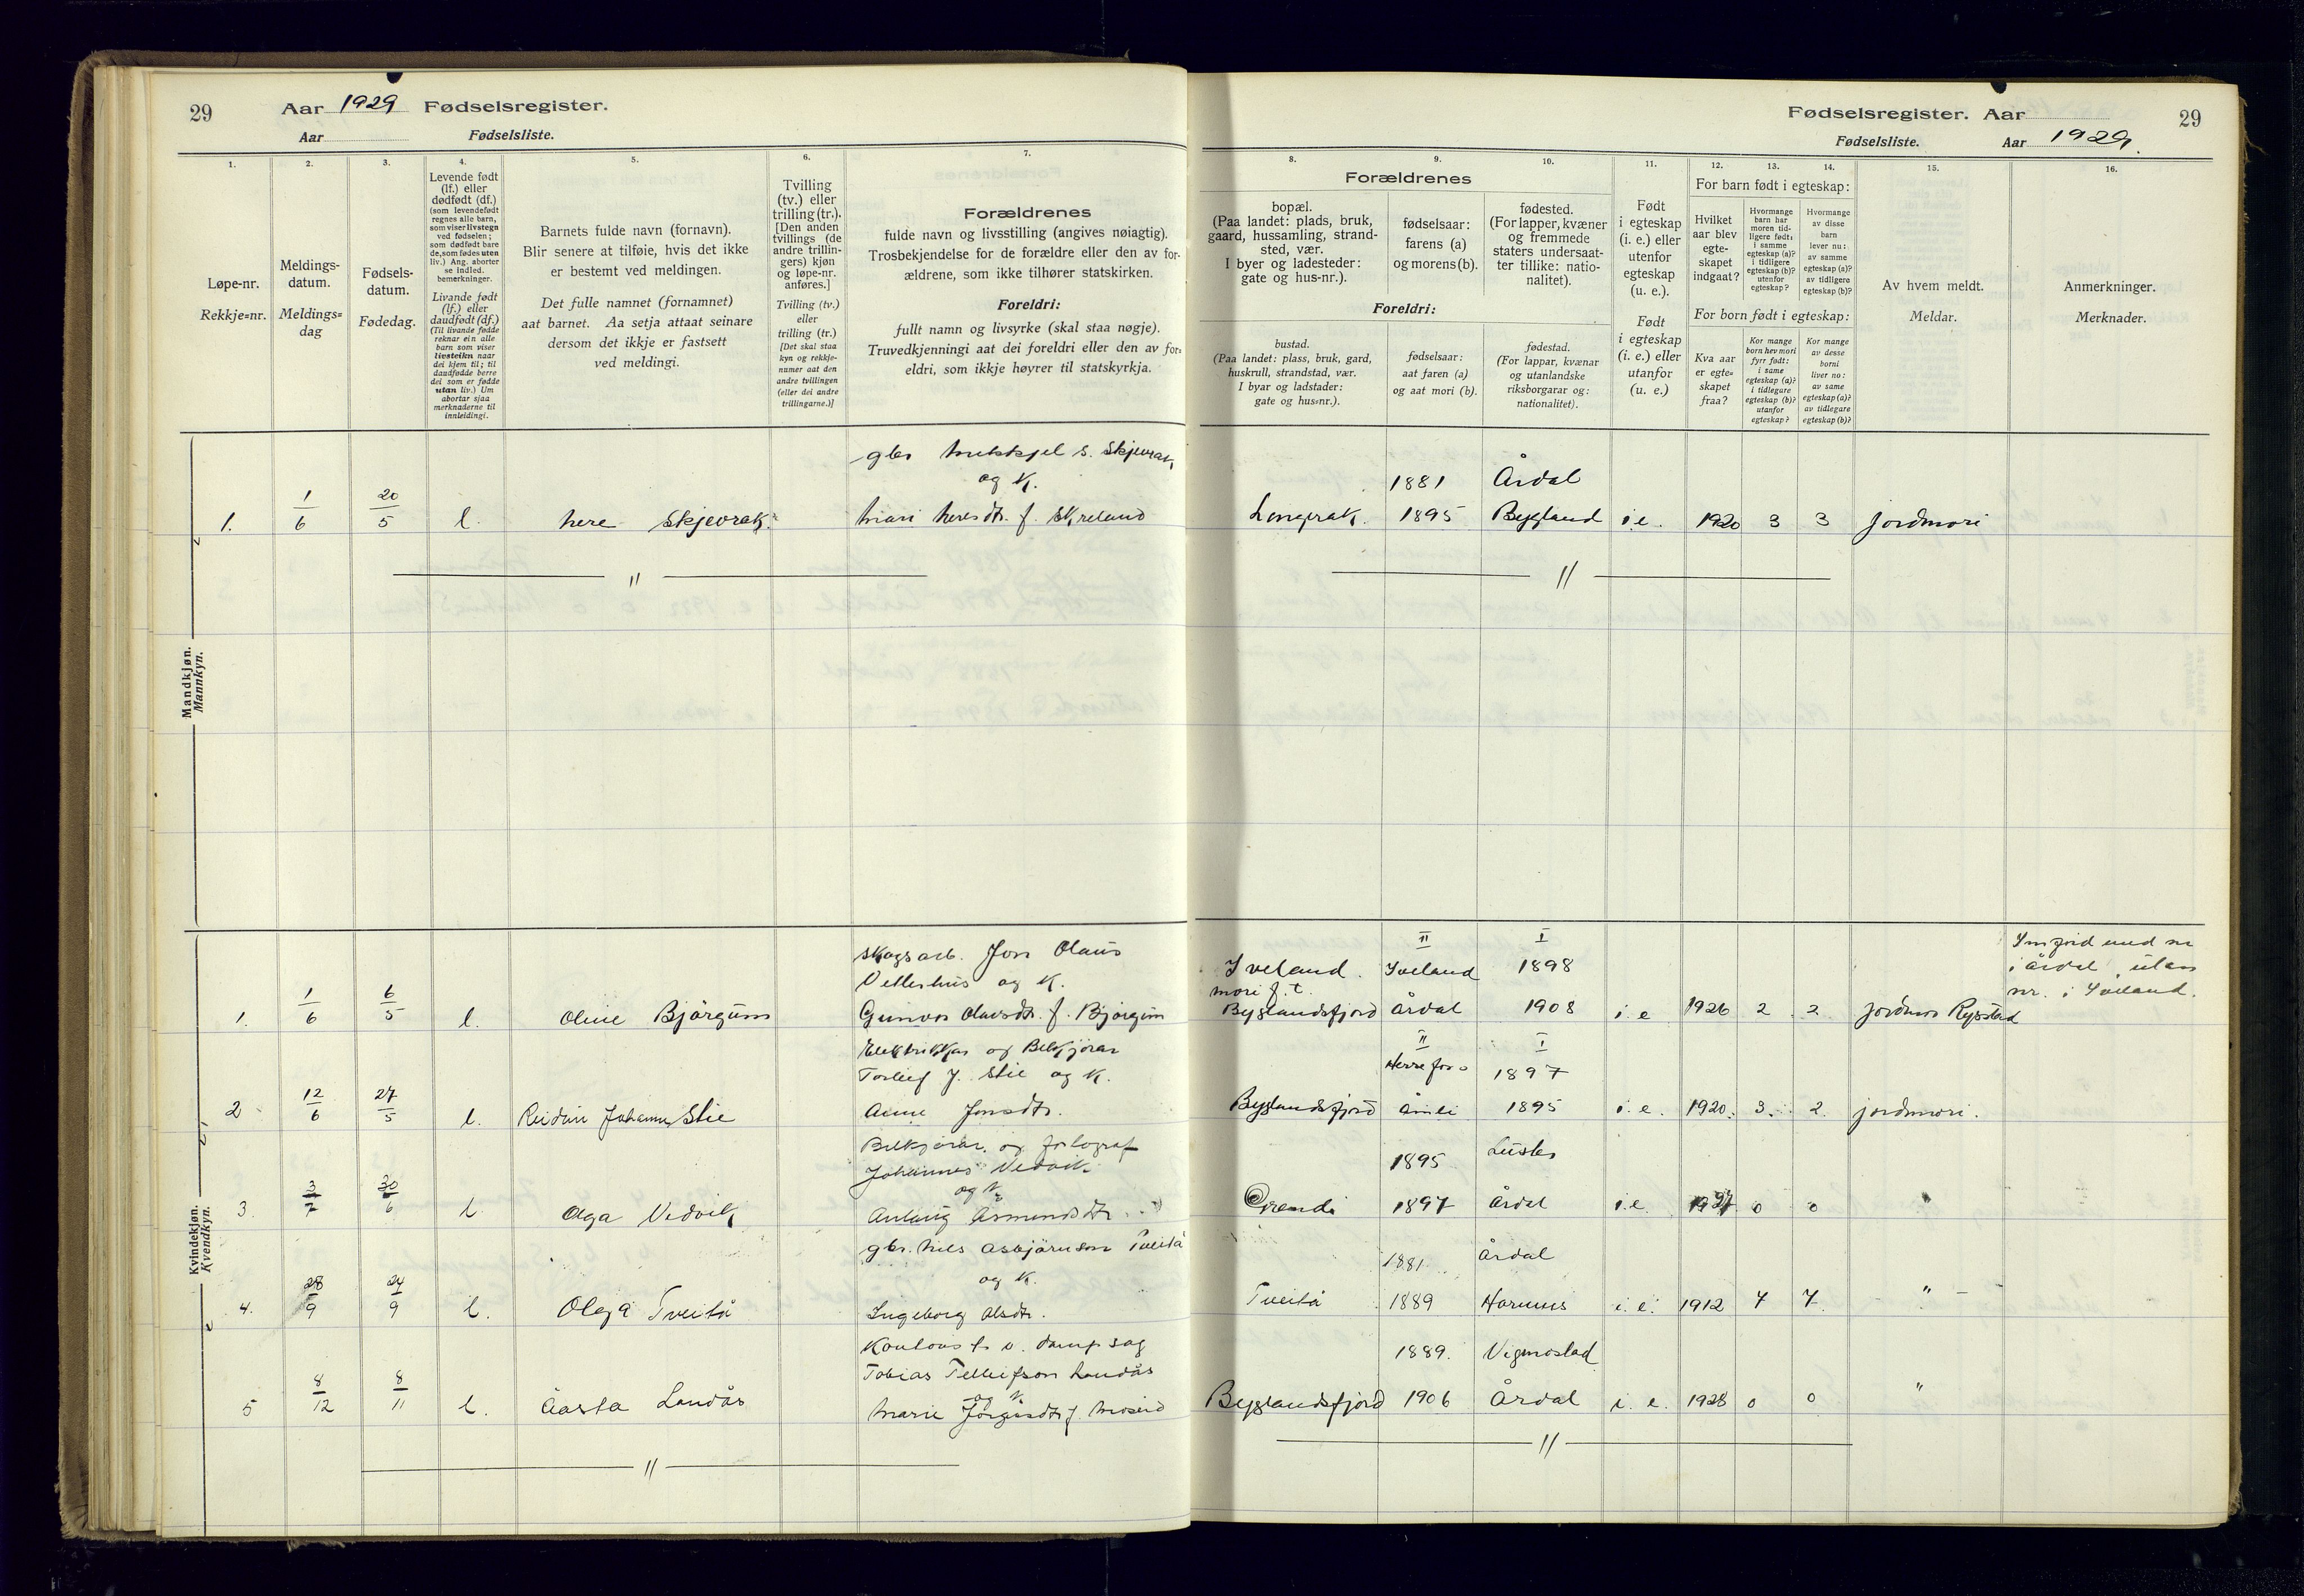 29 Aar 1929 Fødselsregister.
Aar Fødselsliste.
1.
Løpe-nr.
Rekkje=nr.
2.
Meldings-
datum.
Meldings=
dag
3.
Fødsels-
datum.
Fødedag.
4.
Levende født
(lf.) eller
dødfødt (df.)
(som levendefødt
regnes alle barn,
som viser livstegn
ved fødselen;
som dødfødt bare
de, som fødes uten
liv.) Ang. aborter
se indled.
bemerkninger.
Livande født
(lf.) eller
daudfødt (df.)
(Til livande fødde
reknar ein alle
barn som viser
livsteikn naar
dei kjem til; til
daudfødde berre
dei som er fødde
utan liv.) Um
abortar sjaa
merknaderne til
innleidingi.
5.
Barnets fulde navn (fornavn).
Blir senere at tilføie, hvis det ikke
er bestemt ved meldingen.
Det fulle namnet (fornamnet)
aat barnet. Aa setja attaat seinare
dersom det ikkje er fastsett
ved meldingi.
6.
Tvilling
(tv.) eller
trilling (tr.).
[Den anden
tvillings (de
andre trillin-
gers) kjøn
og løpe-nr.
anføres.]
Tvilling (tv.)
eller
trilling (tr.)
[Det skal staa
kyn og rekkje-
numer aat den
andre tvillingen
(eller dei andre
trillingarne.)]
7.
Forældrenes
fulde navn og livsstilling (angives nøiagtig).
Trosbekjendelse for de forældre eller den av for-
ældrene, som ikke tilhører statskirken.
Foreldri:
fullt namn og livsyrke (skal staa nøgje).
Truvedkjenningi aat dei foreldri eller den av for-
eldri, som ikkje høyrer til statskyrkja.
Mandkjøn.
Mannkyn.
gbr
S. Skjevrak
og K.
1. 1/6 20/5 l. Skjevrak.
f. Skreland
"
Kvindekjøn.
Kvendkyn.
skogsarb. Jon Olaus
Vetterhus og K.
1. 1/6 6/5 l. Oline Bjørgum
Gunvor Olavsdtr. f. Bjørgum
Elektrikkar og Bilkjørar
Torleif J. Stie og K.
2 12/6 27/5 l. Reidun Johanne Stie
Anne Jonsdtr.
Bilkjørar og fotograf
Johannes Vedvik
og K.
3. 3/7 30/6 l. Olga Vedvik
Anlaug Asmundsdtr.
gbr. Nils Asbjørnson Tveitå
og K.
4. 28/9 24/9 l. Olga Tveitå
Ingeborg Olsdtr.
Tobias Tellefson Landås
og K.
5 8/12 8/11 l. Aasta Landås
Marie
"
Fødselsregister. Aar 29
Fødselsliste. Aar 1929.
Forældrenes
8.
bopæl.
(Paa landet: plads, bruk,
gaard, hussamling, strand-
sted, vær.
I byer og ladesteder:
gate og hus-nr.).
9.
fødselsaar:
farens (a)
og morens (b).
10.
fødested.
(For lapper, kvæner
og fremmede
staters undersaat-
ter tillike: natio-
nalitet).
Foreldri:
bustad.
(Paa landet: plass, bruk, gard,
huskrull, strandstad, vær.
I byar og ladstader:
gate og hus=nr.).
fødselsaar:
aat faren (a)
og aat mori (b).
fødestad.
(For lappar, kvænar
og utanlandske
riksborgarar og:
nationalitet).
11.
Født
i egteskap
(i. e.) eller
utenfor
egteskap
(u. e.).
Født
i egteskap
(i. e.) eller
utanfor
(u. e.)
For barn født i egteskap:
12.
Hvilket
aar blev
egte-
skapet
indgaat?
13.
Hvormange
barn har
moren tid-
ligere født:
i samme
egteskap (a)?
i tidligere
egteskap (b)?
utenfor
egteskap?
14.
Hvormange
av disse
barn
lever nu:
av samme
egteskap (a)?
av tidligere
egteskap (b)?
For born født i egteskap:
Kva aar
er egte=
skapet
fraa?
Kor mange
born hev mori
fyrr født:
i same
egteskap (a)?
i tidlegare
egteskap (b)?
utanfor
egteskap?
Kor mange
av desse
borni
liver no:
av same
egteskap (a)?
av tidlegare
egteskap (b)?
15.
Av hvem meldt.
Meldar.
16.
Anmerkninger.
Merknader.
1881 Årdal
Longerak. 1895 Bygland i.e. 1920 3 3 jordmori
"
II I
Iveland. Iveland 1898
mori f. t.
Byglandsfjord Årdal 1908 i. e 1926 2 2 jordmor Rysstad
Innførd med nr
i Årdal, utan
nr. i Iveland.
II I
Herefoss 1897
Byglandsfjord Åmli 1895 i. e. 1920. 3. 2. jordmori.
1895 Luster
Grendi 1897 Årdal i.e. 1927 0 0 "
1881. Årdal
Tveitå 1889 Hornnes i. e. 1912 7 7 "
1889. Vigmostad
Byglandsfjord 1906 Årdal i. e. 1928 0 0 "
"